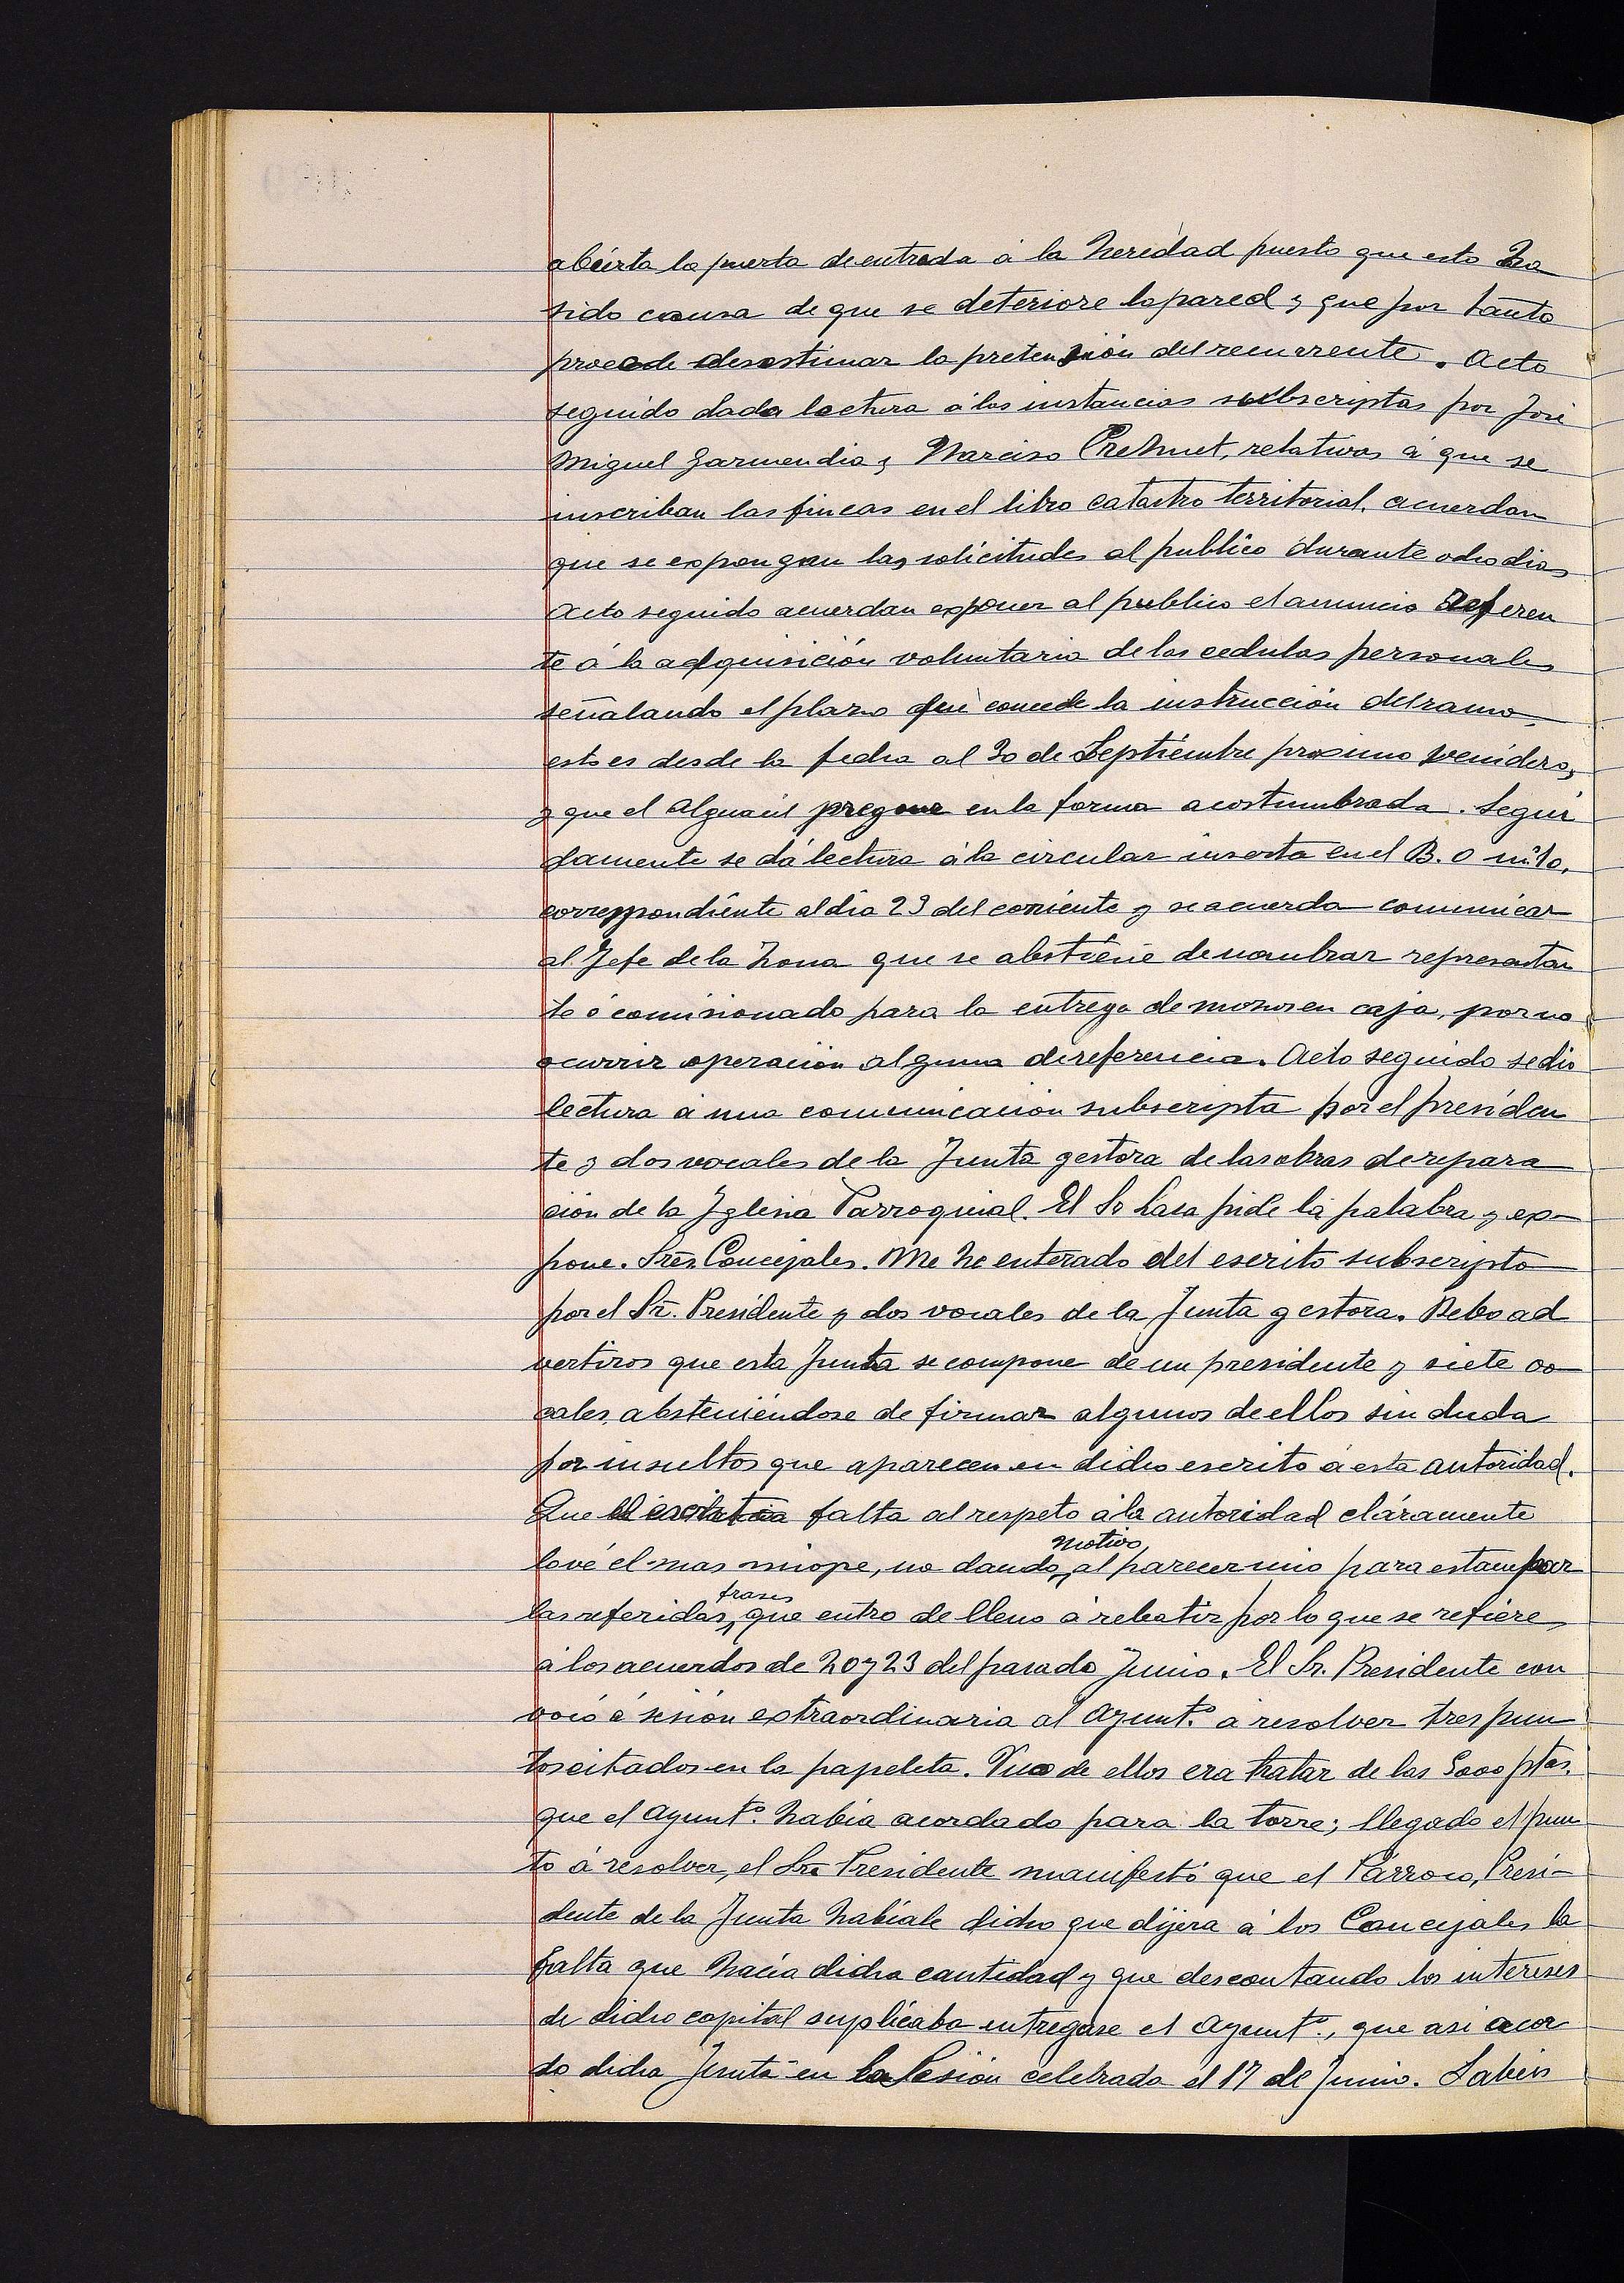 abierta la puerta de entrada á la heredad puesto que esto ha
sido causa de que se deteriore la pared y que por tanto
procede desestimar la pretensión del recurrente. Acto
seguido dada lectura á las instancias subscriptas por José
Miguel Garmendia y Narciso, relativas á que se
inscriban las fincas en el libro catastro territorial, acuerdan
que se expongan las solicitudes al publico durante ocho dias
Acto seguido acuerdan exponer al publico el anuncio referen
te á la adquisición voluntaria de las cedulas personales
señalando el plazo que concede la instrucción del ramo,
esto es desde la fecha al 30 de Septiembre proximo venidero,
y que el Alguacil pregone en la forma acostumbrada. Segui
damente se dá lectura á la circular inserta en el B. O nº 10,
correspondiente al dia 23 del corriente y se acuerda comunicar
al Jefe de la Zona que se abstiene de nombrar representan
te ó comisionado para la entrega de mozos en caja, por no
ocurrir operación alguna de referencia. Acto seguido se dio
lectura á una comunicación subscripta por el presiden
te y dos vocales de la Junta gestora de las obras de repara
ción de la Iglesia Parroquial. El Sr Lasa pide la palabra y ex-
pone. Sres Concejales. Me he enterado del escrito subscripto
por el Sr. Presidente y dos vocales de la Junta gestora. Debo ad
vertiros que esta Junta se compone de un presidente y siete vo
cales, absteniéndose de firmar algunos de ellos sin duda
por insultos que aparecen en dicho escrito á esta autoridad.
Que falta al respeto á la autoridad cláramente
lo vé el mas miope, no dando motivo, al parecer mio para estampar
las referidas frases, que entro de lleno á rebatir por lo que se refiere
á los acuerdos de 20 y 23 del pasado Junio. El Sr. Presidente con
vocó á sesión extraordinaria al Ayuntº. á resolver tres pun
tos citados en la papeleta. Uno de ellos era tratar de las 5000 ptas.
que el Ayuntº. habia acordado para la torre; llegado el pun
to á resolver, el Sr Presidente manifestó que el Párroco, Presi-
dente de la Junta habiale dicho que dijera á los Concejales la
falta que hacia dicha cantidad y que descontando los intereses
de dicho capital suplicaba entregase el Ayuntº., que asi acor
do dicha Junta en la Sesión celebrada el 17 de Junio. Sabeis